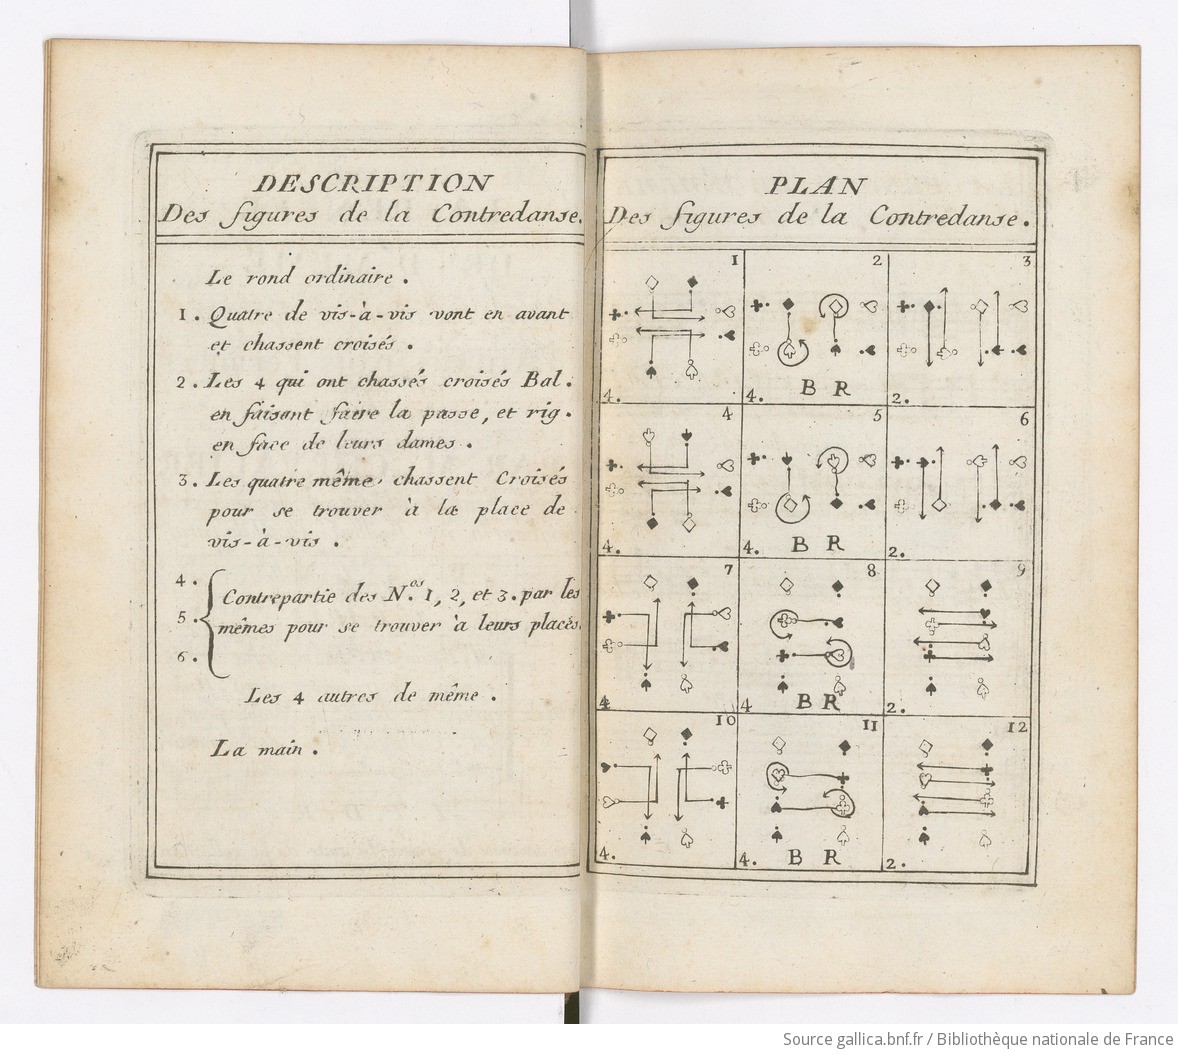 DESCRIPTION
Des figures de la Contredanse.
Le rond ordinaire.
1. Quatre de vis-à-vis vont en avant
et chassent croisés.
2. Les 4 qui ont chassés croisés Bal.
en faisant faire la passe, et rig.
en face de leurs dames.
3. Les quatre même chassent Croisés
pour se trouver à la place de
vis-à-vis.
4.
5.
6.
Contrepartie des N.os 1, 2, et 3. par les
mêmes pour se trouver à leurs places.
Les 4 autres de même.
La main.
PLAN
Des figures de la Contredanse.
1
4.
2
4. B R
3
2.
4
4.
5
4. B R
6
2.
7
4
8
4 B R
9
2.
10
4.
11
4. B R
12
2.
Source gallica.bnf.fr / Bibliothèque nationale de France